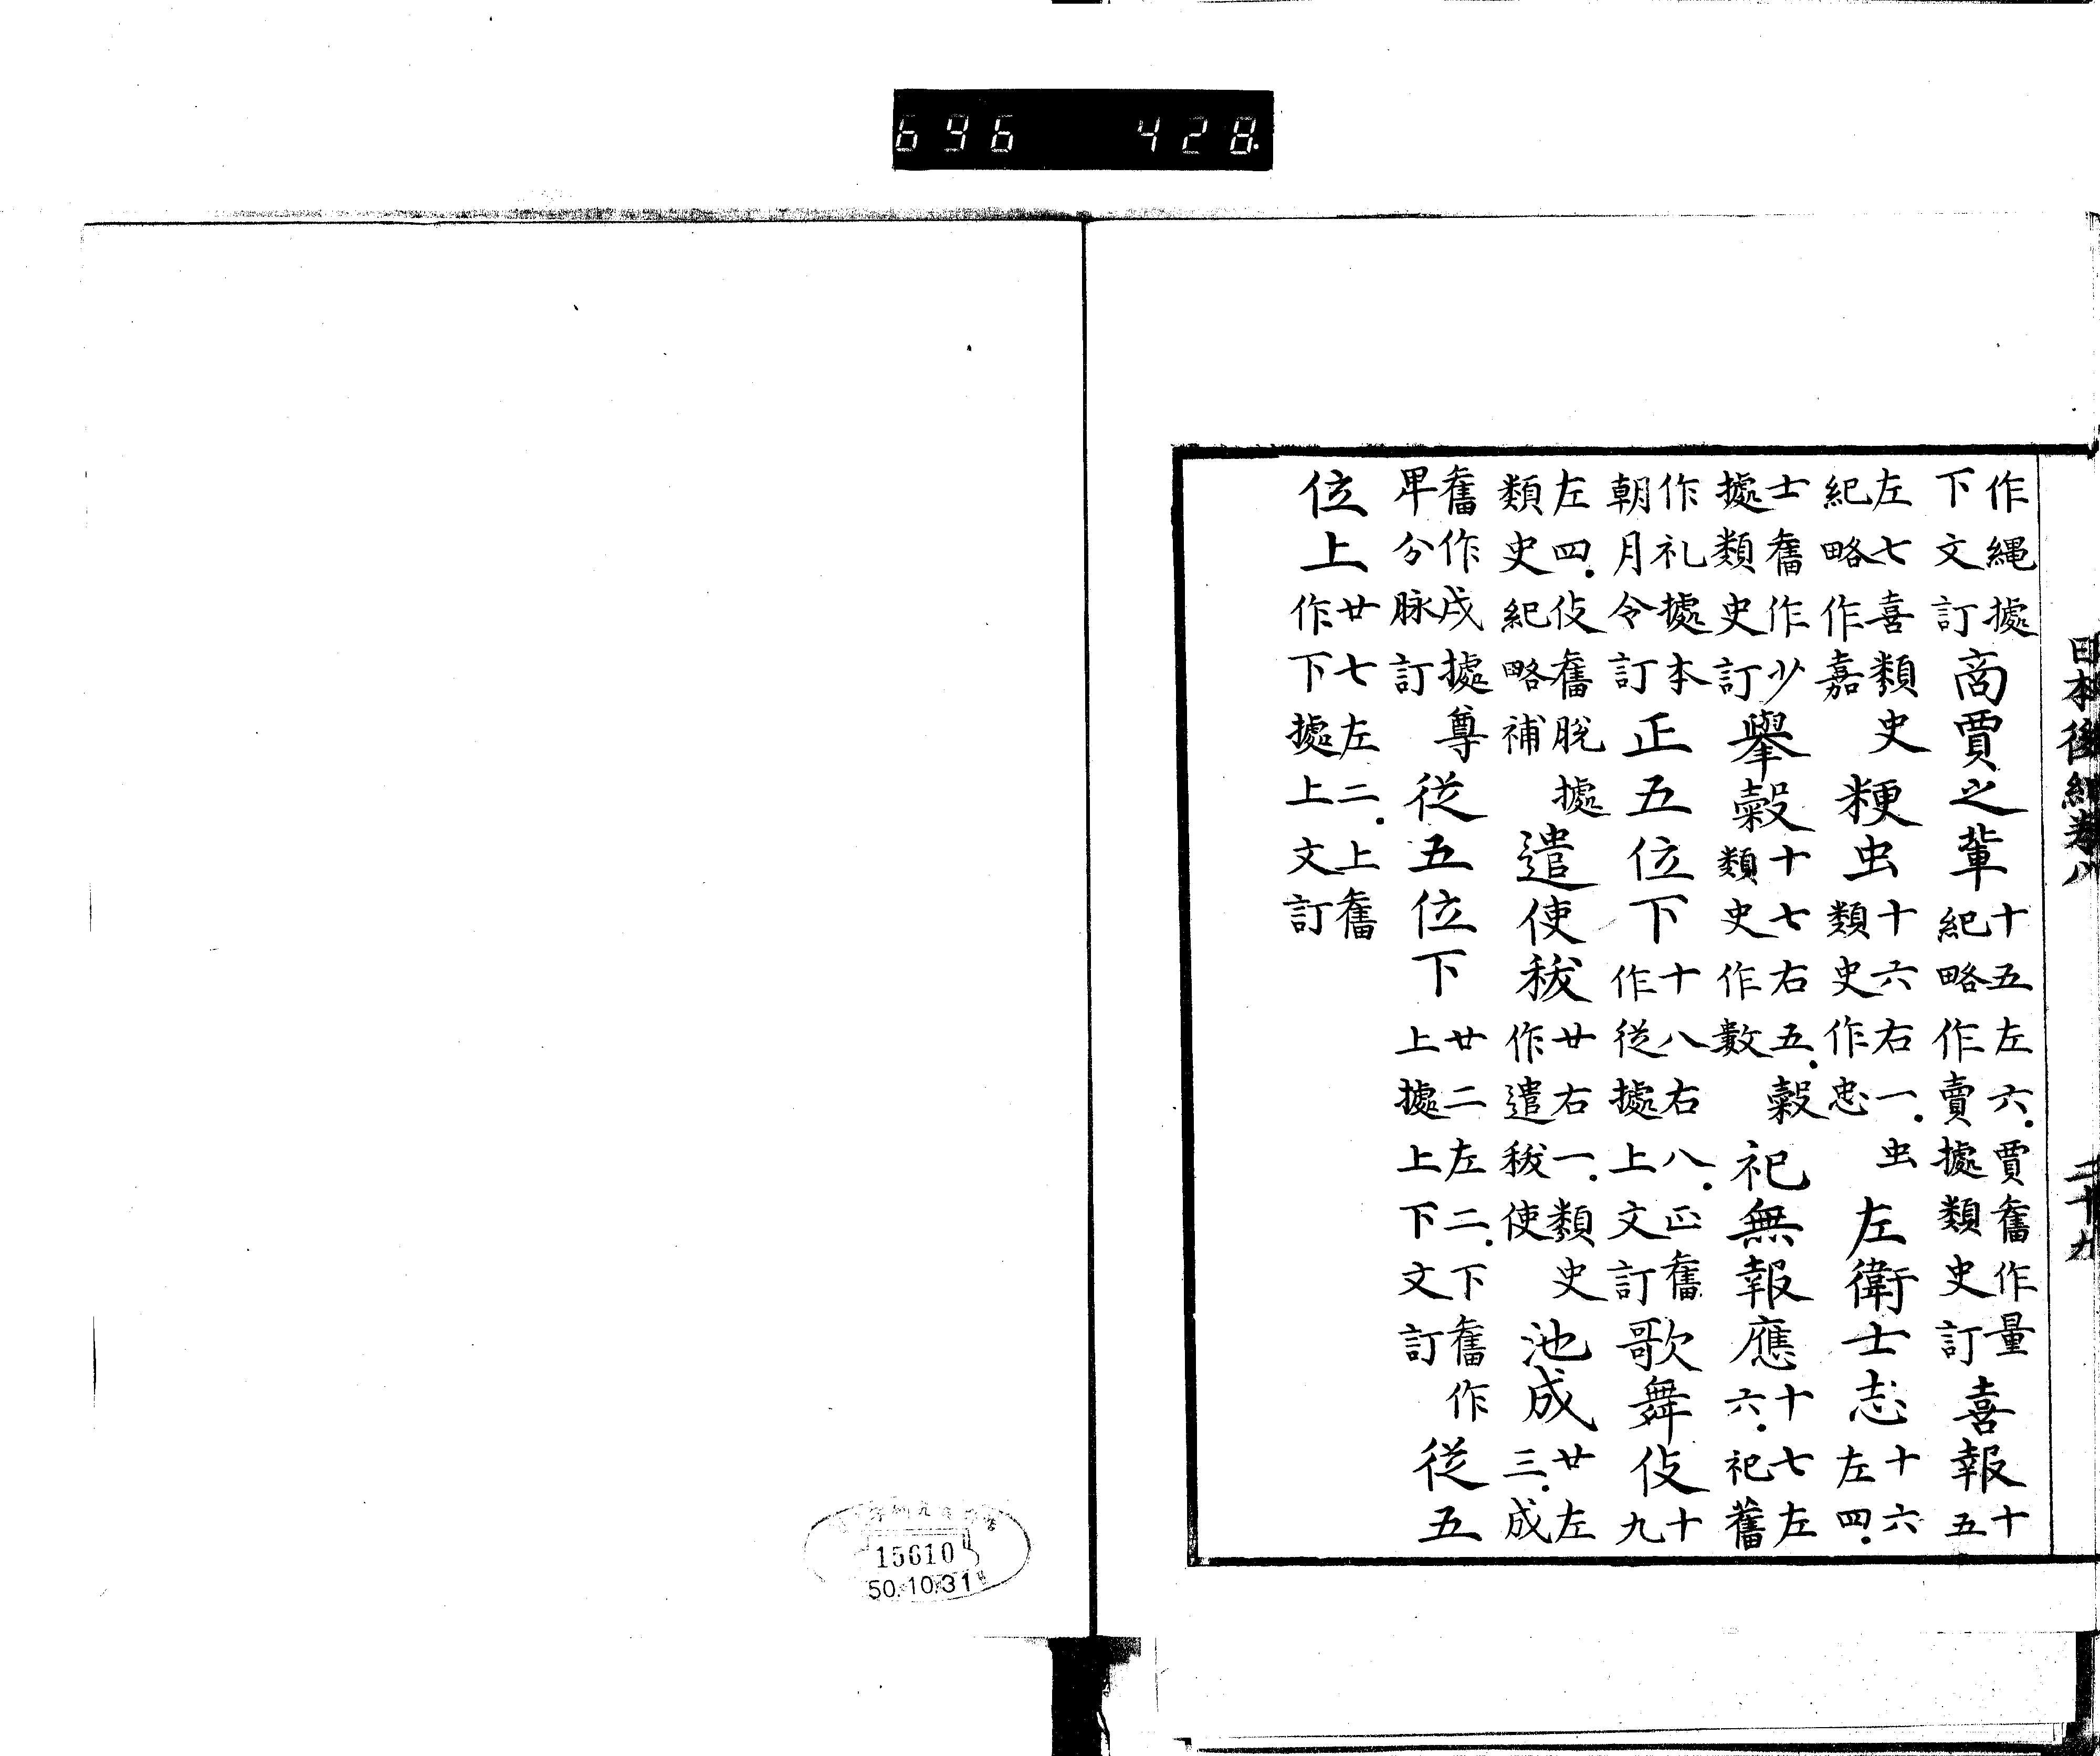 696 428.
日本後紀卷八 二十九
作縄據下文訂 商賈之輩 十五左六．賈舊作量紀略作賣據類史訂 喜報 十五
左七喜類史紀略作嘉 粳虫 十六右一．虫類史作忠 左衛士志 十六左四．
士舊作少據類史訂 擧穀 十七右五．穀類史作數 祀無報應 十七左六．祀舊
作礼據本朝月令訂 正五位下 十八右八．正舊作従據上文訂 歌舞伎 十九
左四．伎舊脱據類史紀略補 遣使秡 廿右一．類史作遣秡使 池成 廿左三．成
舊作戌據尊卑分脉訂 従五位下 廿二左二．下舊作上據上下文訂 従五
位上 廿七左二．上舊作下據上文訂
15610
50.10.31